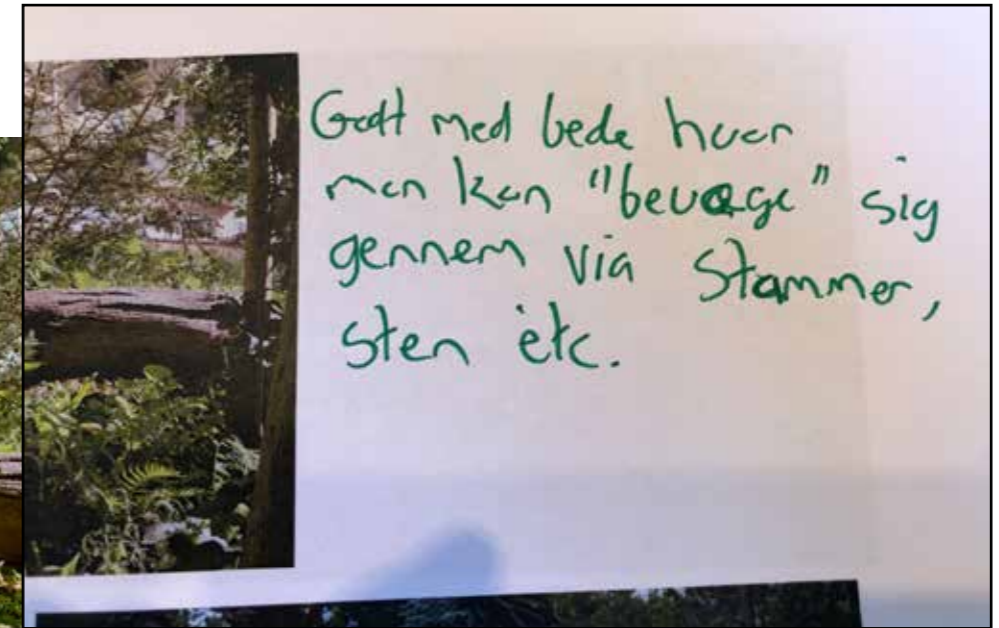 Godt med bede hvor
man kan "bevæge" sig
gennem via stammer,
sten etc.